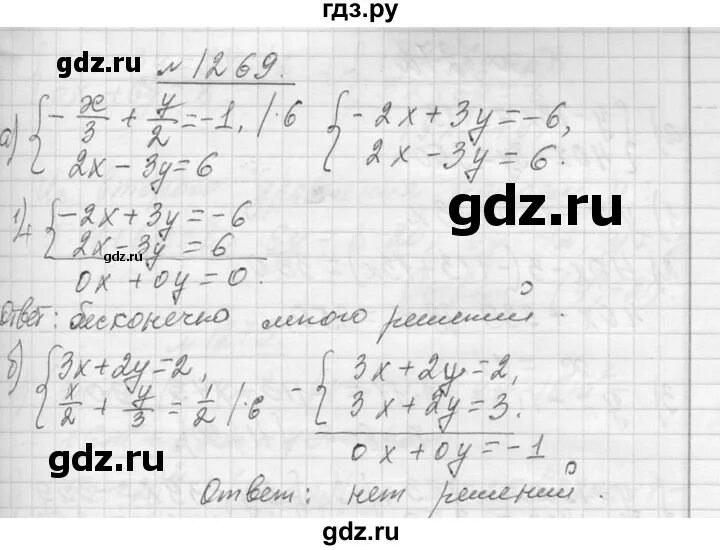 гдз.ру
gdz.ru
№ 1269.
а) { -x/3 + y/2 = -1, | · 6
2x - 3y = 6
{ -2x + 3y = -6,
2x - 3y = 6.
gdz.ru
1) + { -2x + 3y = -6
2x - 3y = 6
gdz.ru
0x + 0y = 0.
Ответ: бесконечно много решений.
б) { 3x + 2y = 2,
x/2 + y/3 = 1/2 | · 6
- { 3x + 2y = 2,
3x + 2y = 3.
0x + 0y = -1
gdz.ru
gdz.ru
Ответ: нет решений.
gdz.ru